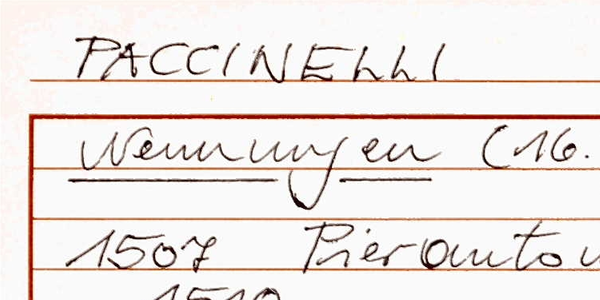 PACCINELLI
Nennungen (16.
1507 Pieranto
1510